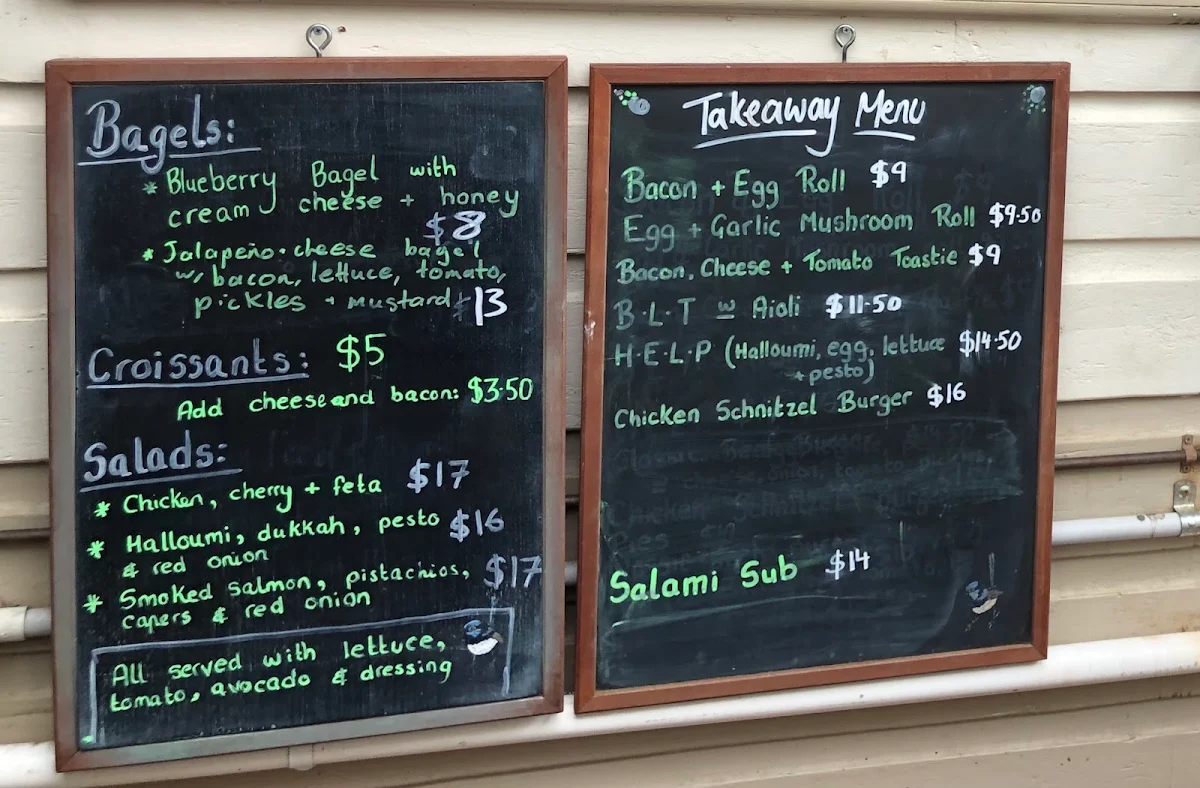 Bagels:
* Blueberry Bagel with
cream cheese + honey
$8
* Jalapeño·cheese bagel
w/ bacon, lettuce, tomato,
pickles + mustard $13
Croissants: $5
Add cheese and bacon: $3·50
Salads:
* Chicken, cherry + feta $17
* Halloumi, dukkah, pesto $16
& red onion
* Smoked salmon, pistachios, $17
capers & red onion
All served with lettuce,
tomato, avocado & dressing
Takeaway Menu
Bacon + Egg Roll $9
Egg + Garlic Mushroom Roll $9·50
Bacon, Cheese + Tomato Toastie $9
B·L·T w Aioli $11·50
H·E·L·P (Halloumi, egg, lettuce $14·50
+ pesto)
Chicken Schnitzel Burger $16
Salami Sub $14